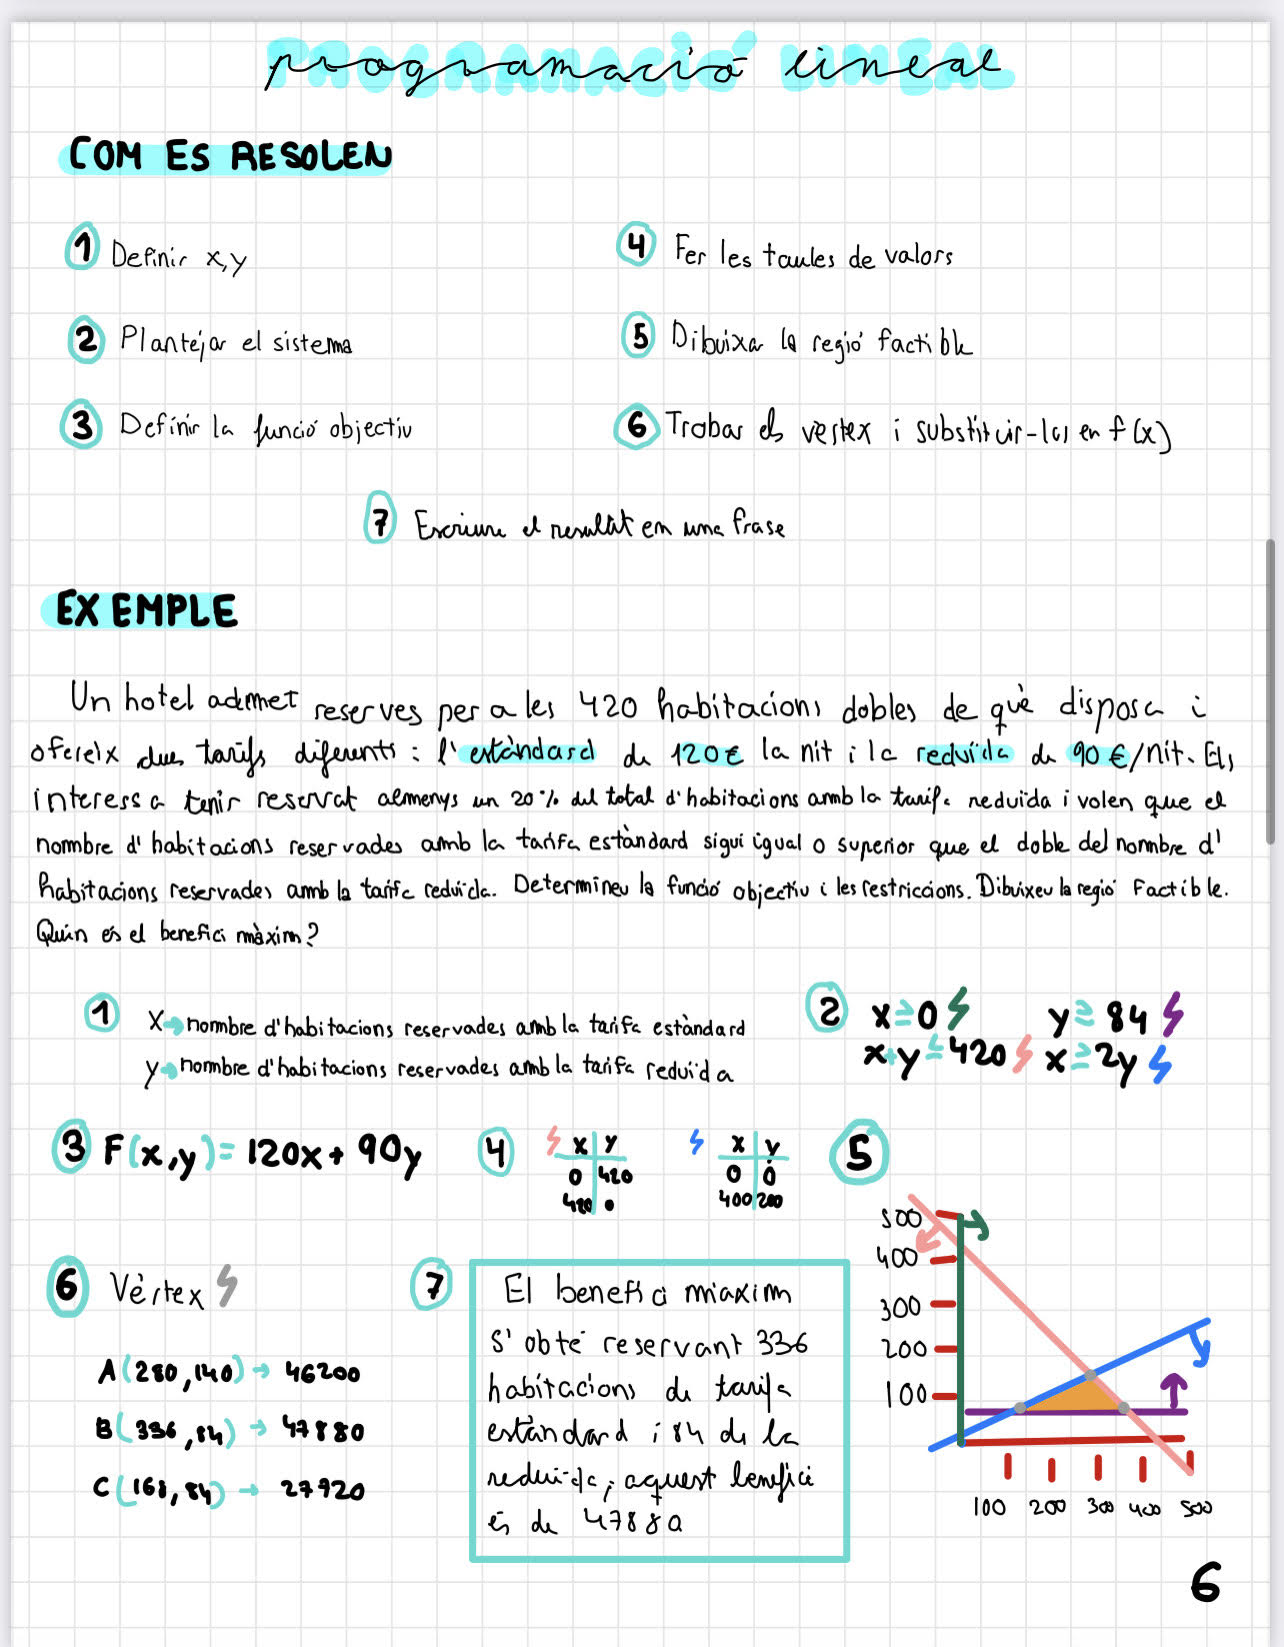 programació lineal
COM ES RESOLEN
1 Definir x,y
2 Plantejar el sistema
3 Definir la funció objectiu
4 Fer les taules de valors
5 Dibuixar la regió factible
6 Trobar els vèrtex i substituir-los en f(x)
7 Escriure el resultat en una frase
EXEMPLE
Un hotel admet reserves per a les 420 habitacions dobles de què disposa i
ofereix dues tarifs diferents: l'estàndard de 120€ la nit i la reduïda de 90€/nit. Els
interessa tenir reservat almenys un 20% del total d'habitacions amb la tarifa reduïda i volen que el
nombre d'habitacions reservades amb la tarifa estàndard sigui igual o superior que el doble del nombre d'
habitacions reservades amb la tarifa reduïda. Determineu la funció objectiu i les restriccions. Dibuixeu la regió Factible.
Quin és el benefici màxim?
1 X→ nombre d'habitacions reservades amb la tarifa estàndard
y→ nombre d'habitacions reservades amb la tarifa reduïda
2 x≥0 y≥84
x+y≤420 x≥2y
3 F(x,y)=120x+90y
4 x y x y
0 420 0 0
420 0 400 200
5
500
400
300
200
100
100 200 300 400 500
6 Vèrtex
A(280,140)→ 46200
B(336,84)→ 47880
C(168,84)→ 27920
7 El benefici màxim
s'obté reservant 336
habitacions de tarifa
estàndard i 84 de la
reduïda, aquest benefici
és de 47880
6